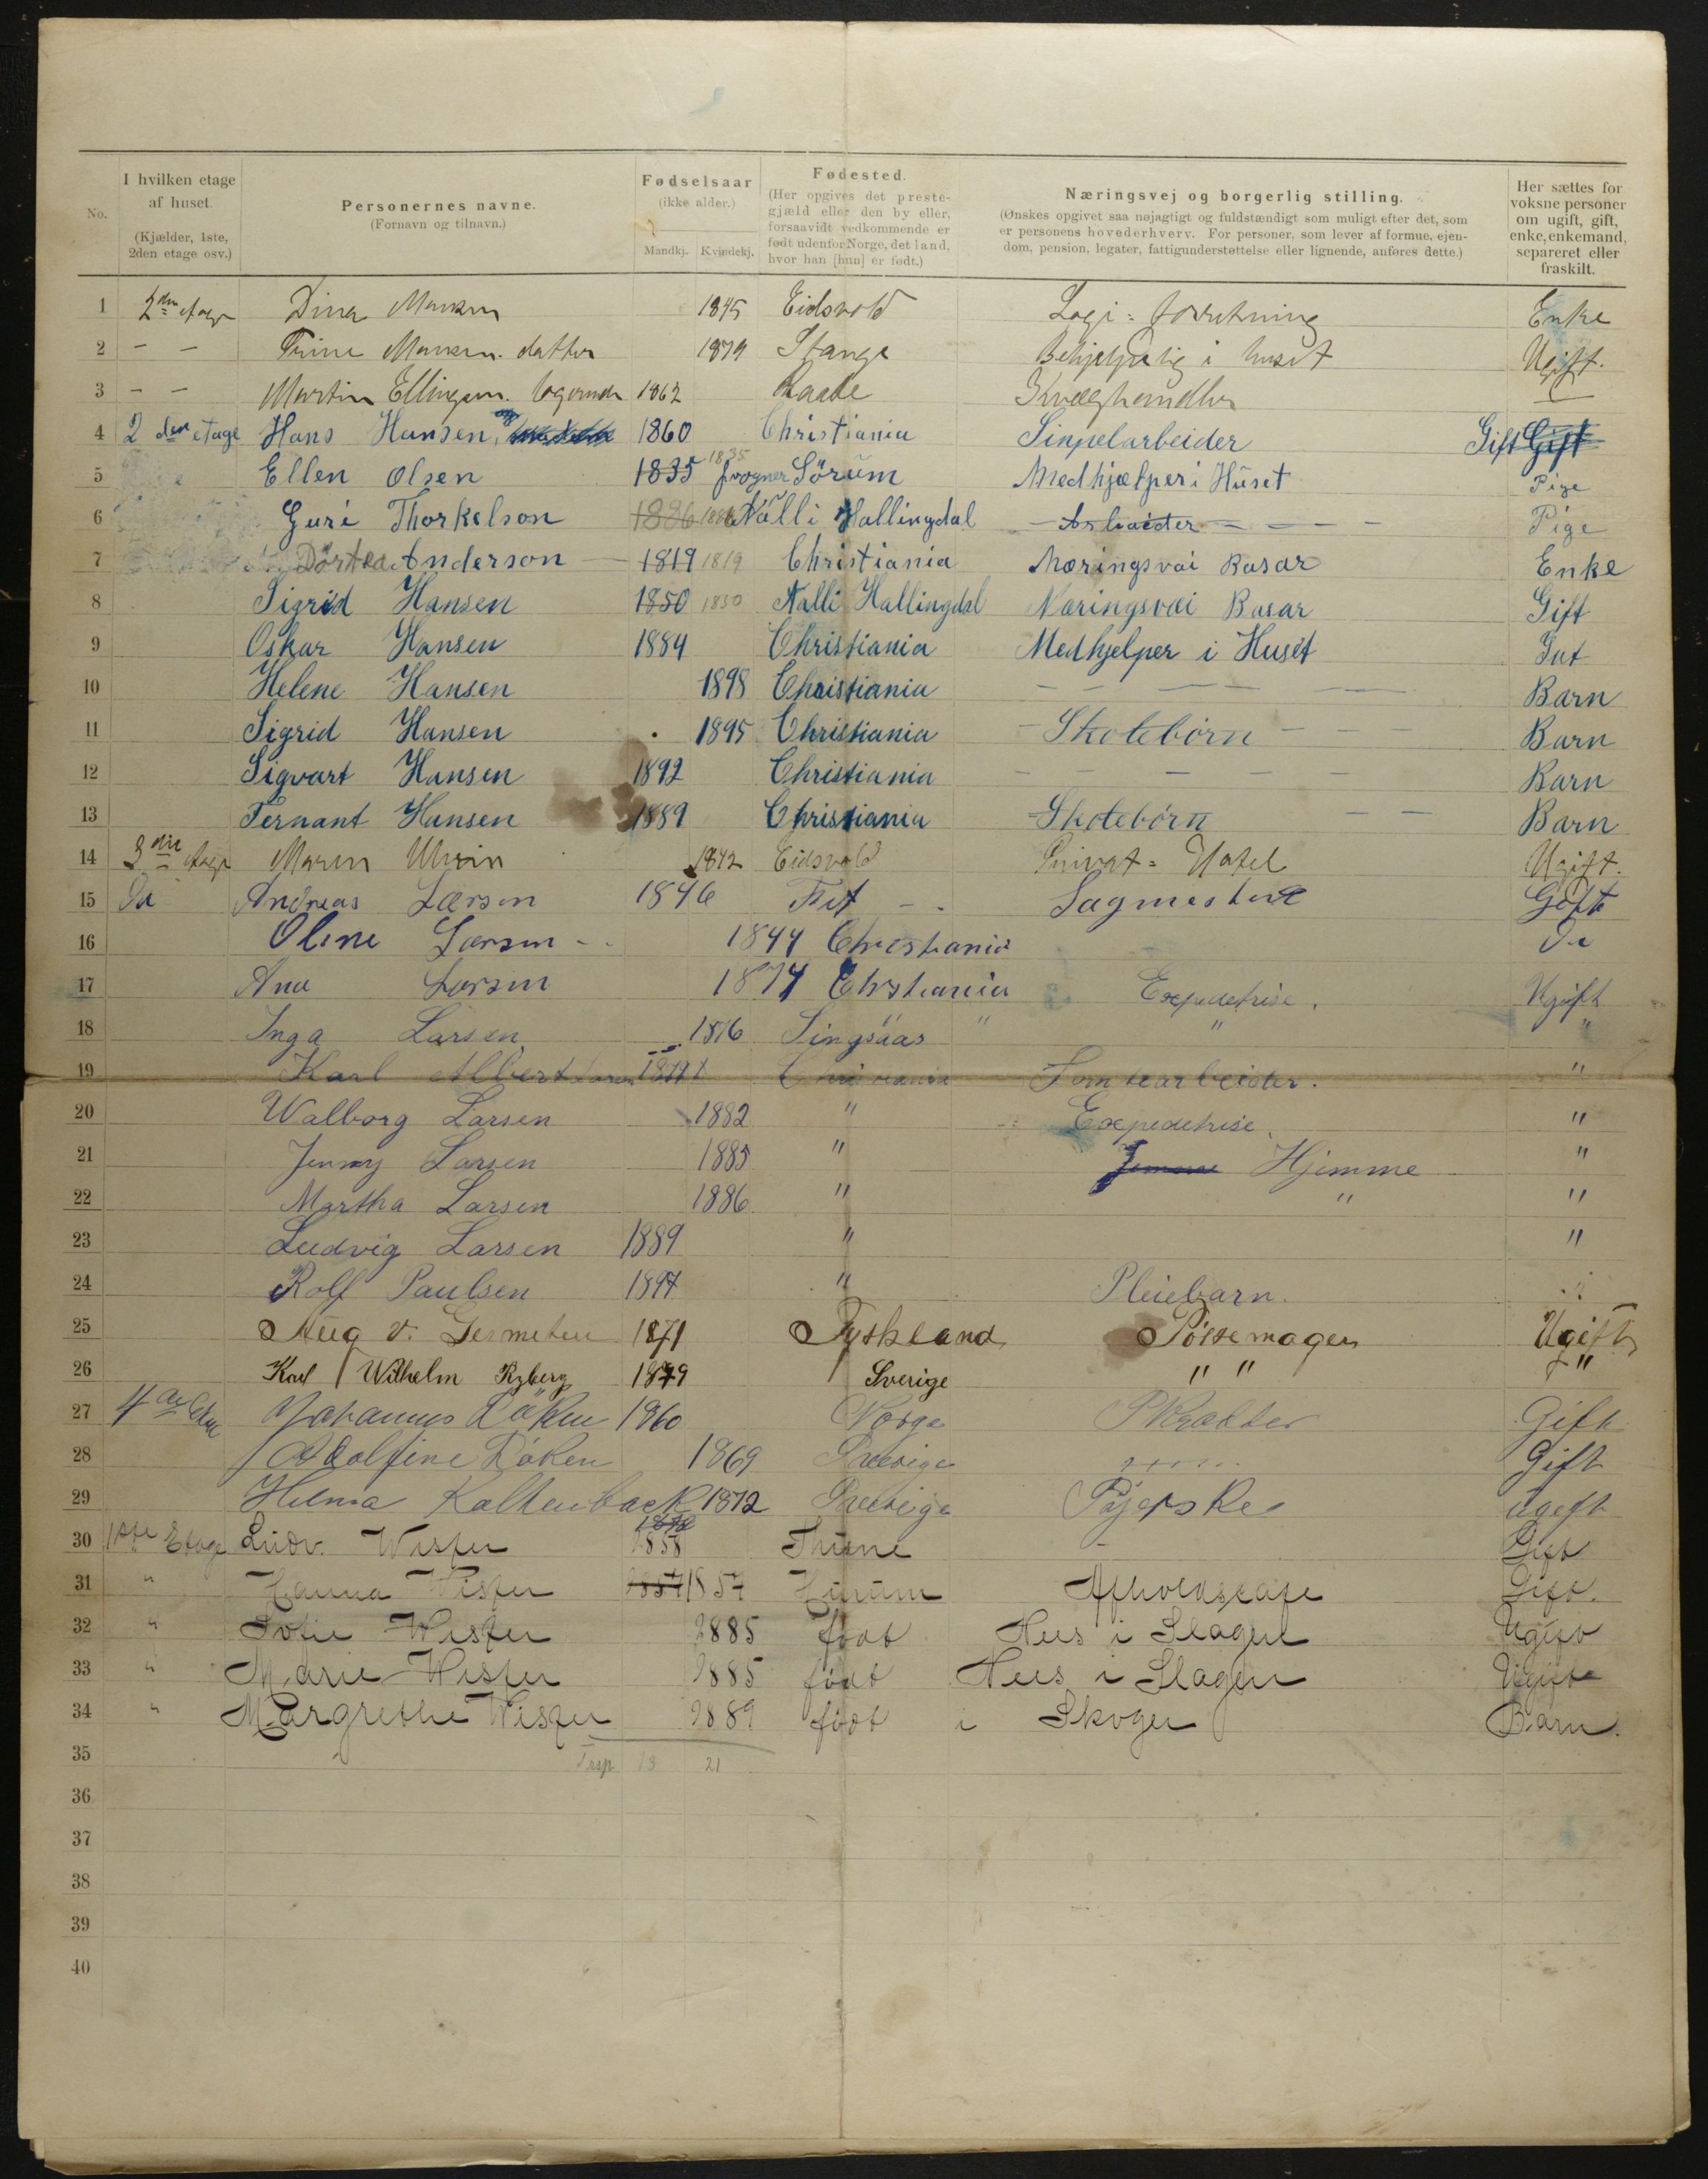 No.
I hvilken etage af huset. (Kjælder, 1ste, 2den etage osv.)
Personernes navne. (Fornavn og tilnavn.)
Fødselsaar (ikke alder.)
Mandkj. Kvindekj.
Fødested. (Her opgives det prestegjæld eller den by eller, forsaavidt vedkommende er født udenfor Norge, det land, hvor han [hun] er født.)
Næringsvej og borgerlig stilling. (Ønskes opgivet saa nøjagtigt og fuldstændigt som muligt efter det, som er personens hovederhverv. For personer, som lever af formue, ejendom, pension, legater, fattigunderstøttelse eller lignende, anføres dette.)
Her sættes for voksne personer om ugift, gift, enke, enkemand, separeret eller fraskilt.
1 2den etage Dina 1845 Eidsvold Logi=forretning Enke
2 – – Trine datter 1879 Stange Behjelpelig i huset Ugift.
3 – – Martin Ellingsen. logerende 1862 Raade Kvæghandler
4 2 den etage Hans Hansen, og 1860 Christiania Simpelarbeider Gift Gift
5 Ellen Olsen 1835 1835 frogner Sörum Medhjælper i Huset Pige
6 Guri Thorkelson 1886 1886 Nalli Hallingdal – Arbaider – – – Pige
7 Dortea Anderson – 1819 1819 Christiania Næringsvai Basar Enke
8 Sigrid Hansen 1850 1850 Nalli Hallingdal Næringsvæi Basar Gift
9 Oskar Hansen 1884 Christiania Medhjelper i Huset Gut
10 Helene Hansen 1898 Christiania – – – – – Barn
11 Sigrid Hansen 1895 Christiania – Skolebörn – – – Barn
12 Sigvart Hansen 1892 Christiania – – – – – Barn
13 Fernant Hansen 1889 Christiania – Skolebörn – – Barn
14 3die etage Maren 1842 Eidsvold Privat=Hotel Ugift.
15 Do Andreas Larsen 1846 Fet – – Sagmester Gift
16 Oline Larsen – 1844 Christiania Do
17 Ana Larsen 1874 Christiania Expeditrise. Ugift
18 Inga Larsen 1876 Singsaas " " "
19 Karl Albert Larsen Christiania Tomtearbeider. "
20 Walborg Larsen 1882 " Expeditrise. "
21 Jenny Larsen 1885 " Hjemme "
22 Martha Larsen 1886 " " "
23 Ludvig Larsen 1889 " "
24 Rolf Paulsen 1897 " Pleiebarn. "
25 Aug v. 1871 Tyskland Pölsemager Ugift
26 Karl Wilhelm Ryberg 1879 Sverige " " "
27 4de Etage Johannes Röken 1860 Norge Gift
28 Adolfine Röken 1869 Sverige Gift
29 Hilma Kaltenback 1872 Sverige ugift
30 1ste Etage Ludv. 1858 Gift
31 " Hanna 1857 1857 Hurum Gift.
32 " Sofie 1885 født Nes i Slagen Ugift
33 " Marie 1885 født Nes i Slagen Ugift
34 " Margrethe 1889 født i Skoger Barn.
35 13 21
36
37
38
39
40